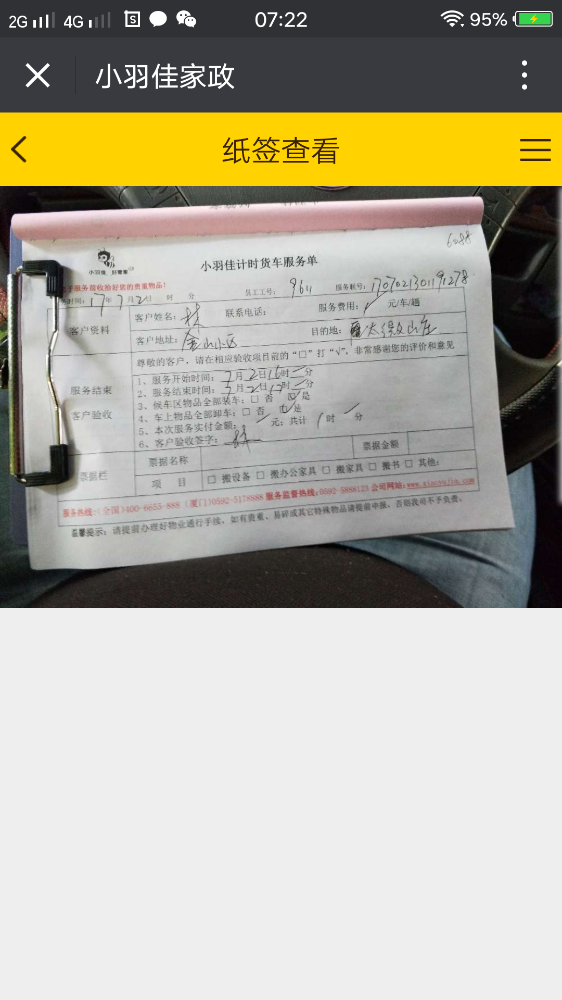 2G 4G 07:22 95%
小羽佳家政
纸签查看
小羽佳计时货车服务单
员工工号: 9611 服务账号: 1707021301191278
时间: 17年7月2日 时 分
客户资料
客户姓名: 林 联系电话: 服务费用: 元/车/趟
客户地址: 金山小区 目的地:
服务结束
客户验收
尊敬的客户, 请在相应验收项目前的“□”打“√”, 非常感谢您的评价和意见
1、服务开始时间: 7月2日16时 分
2、服务结束时间: 7月2日17时 分
3、候车区物品全部装车: □ 否 是
4、车上物品全部卸车: □ 否 是
5、本次服务实付金额: 元; 共计 1时 分
6、客户验收签字: 林
票据栏
票据名称 票据金额
项 目 □ 搬设备 □ 搬办公家具 □ 搬家具 □ 搬书 □ 其他:
服务热线:(全国)400-6655-888 (厦门)0592-5178888 服务监督热线:0592-5888123 公司网址:www.xiaoyujia.com
温馨提示: 请提前办理好物业通行手续, 如有贵重、易碎或其它特殊物品请提前申报, 否则我司不予负责。